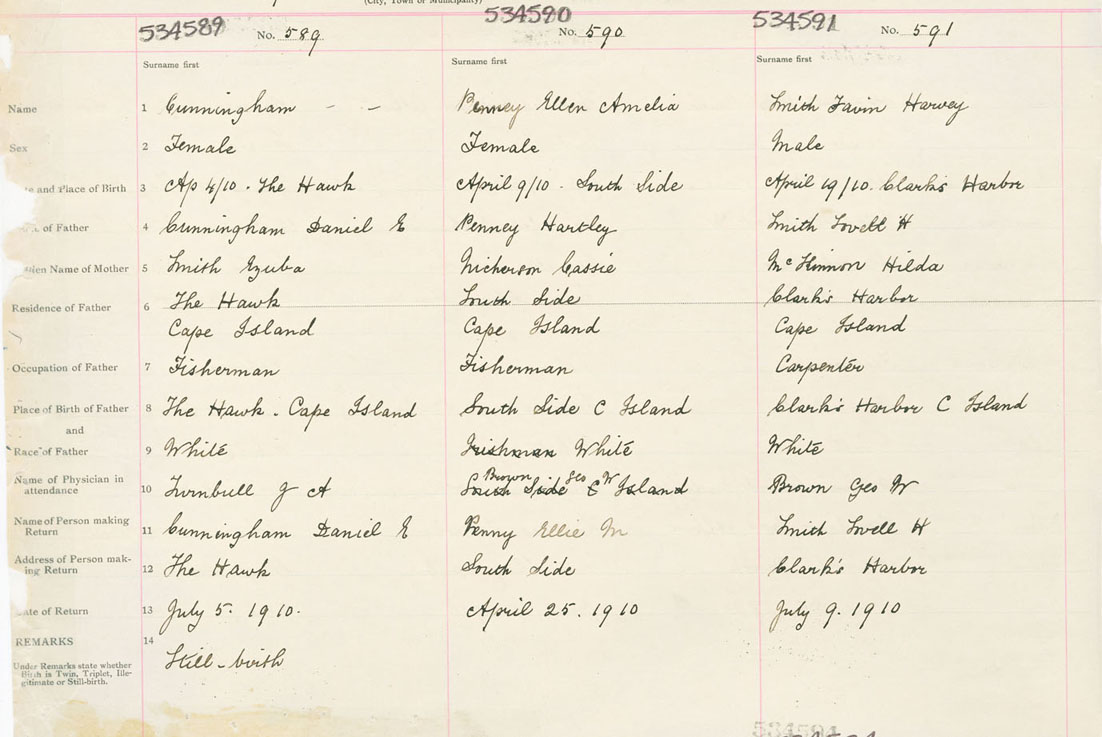 (City, Town or Municipality)
534589 No. 589
534590 No. 590
534591 No. 591
Surname first Surname first Surname first
Name 1 Cunningham - - Penney Ellen Amelia Smith Favin Harvey
Sex 2 Female Female Male
and Place of Birth 3 Ap 4/10. The Hawk April 9/10. South Side April 19/10. Clark's Harbor
of Father 4 Cunningham Daniel E Penney Hartley Smith Lovell H
Name of Mother 5 Smith Ezuba Nickerson Cassie McKinnon Hilda
Residence of Father 6 The Hawk South Side Clark's Harbor
Cape Island Cape Island Cape Island
Occupation of Father 7 Fisherman Fisherman Carpenter
Place of Birth of Father 8 The Hawk. Cape Island South Side C Island Clark's Harbor C Island
and
Race of Father 9 White Irishman White White
Name of Physician in
attendance 10 Turnbull J A Brown Geo W South Side C Island Brown Geo W
Name of Person making
Return 11 Cunningham Daniel E Penny Ellie M Smith Lovell H
Address of Person mak-
ing Return 12 The Hawk South Side Clark's Harbor
Date of Return 13 July 5. 1910. April 25. 1910 July 9. 1910
REMARKS 14
Under Remarks state whether
Birth is Twin, Triplet, Ille-
gitimate or Still-birth.
Still-birth
534594